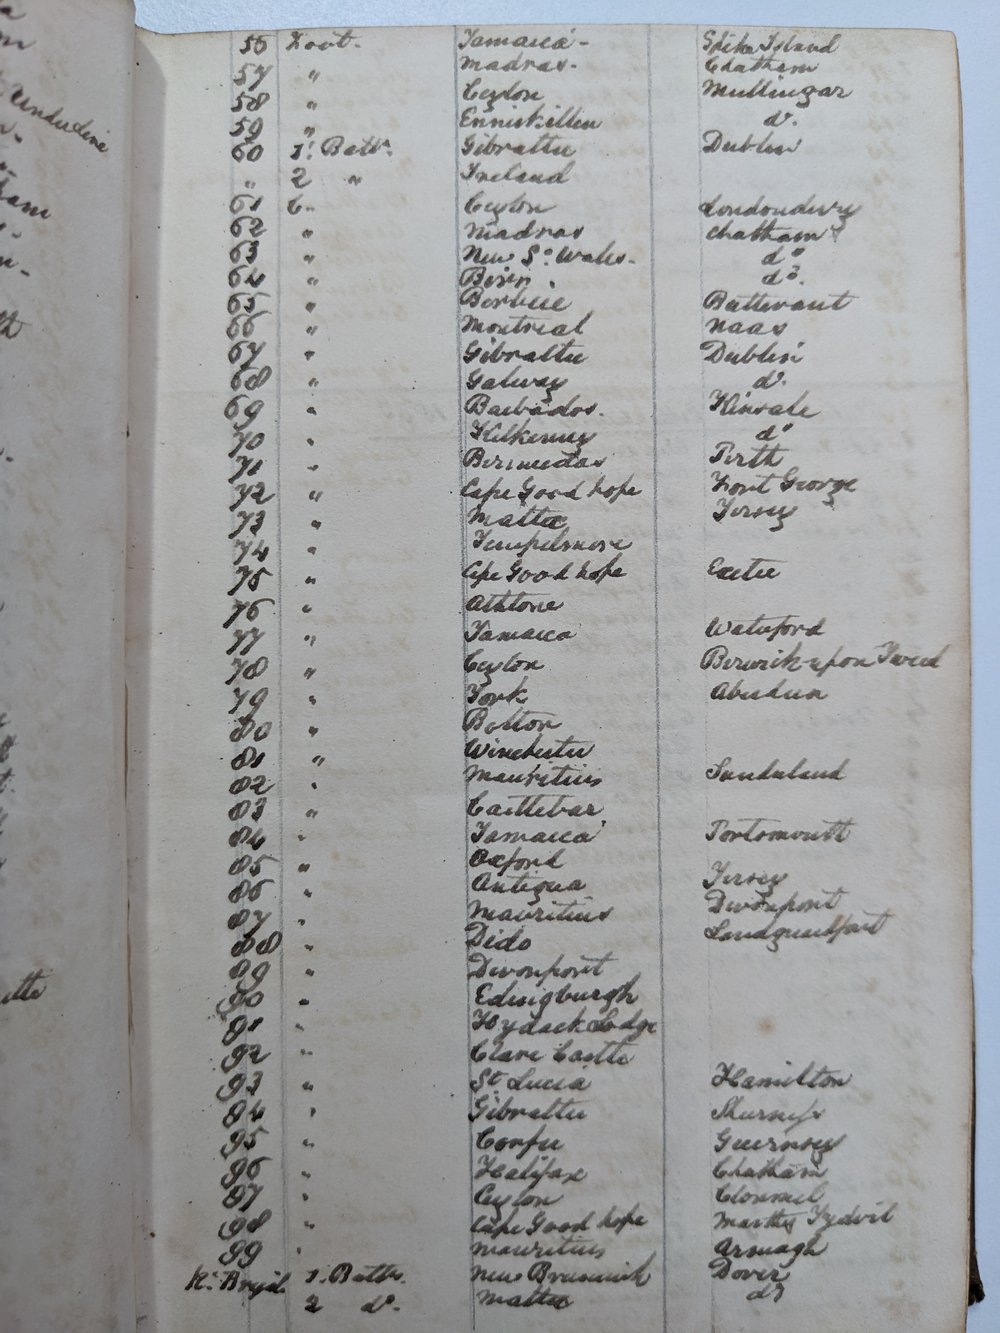 underline
56 Foot. Jamaica - Spike Island
57 " Madras - Chatham
58 " Ceylon Mullingar
59 " Enniskillen do.
60 1st Battn. Gibralter Dublin
" 2 " Ireland
61 Ceylon Londonderry
62 " Madras Chatham
63 " New So. Wales - do
64 " do.
65 " Berbice Buttevant
66 " Montreal Naas
67 " Gibralter Dublin
68 " Galway do.
69 " Barbados. Kinsale
70 " Kilkenny do
71 " Bermudas Perth
72 " Cape Good hope Fort George
73 " Malta Jersey
74 " Templemore
75 " Cape Good hope Exeter
76 " Athlone
77 " Jamaica Waterford
78 " Ceylon Berwick upon Tweed
79 " York Aberdeen
80 " Bolton
81 " Winchester
82 " Mauritius Sunderland
83 " Castlebar
84 " Jamaica Portsmouth
85 " Oxford
86 " Antigua Jersey
87 " Mauritius Devonport
88 " Dido
89 " Devonport
90 " Edingburgh
91 " Haydock Lodge
92 " Clare Castle
93 " St Lucia Hamilton
94 " Gibralter Sheerness
95 " Corfu Guernsey
96 " Halifax Chatham
97 " Ceylon Clonmel
98 " Cape Good hope Tydvil
99 " Mauritius Armagh
Re. Brigd. 1. Battn. New Brunswick Dover
2 do. Malta do